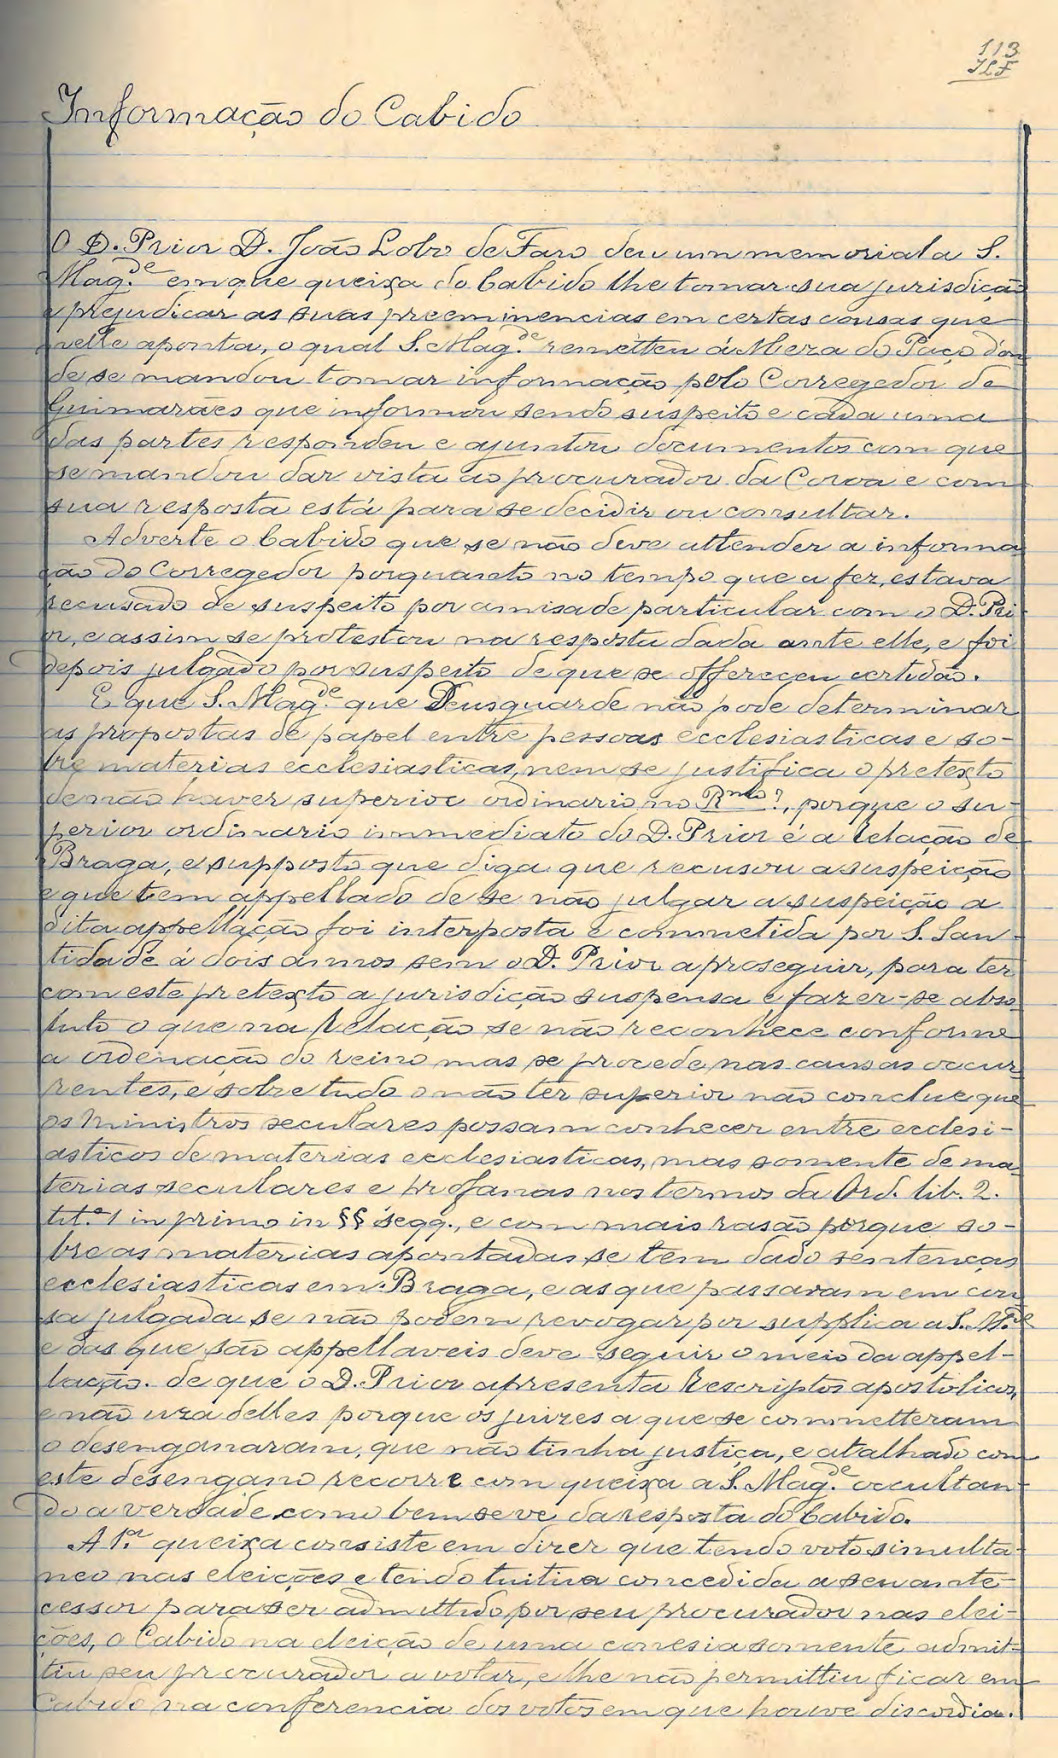 113
JLF
Informação do Cabido
O D. Prior D. João Lobo de Faro deu um memorial a S.
Mag.de em que queixa do Cabido lhe tomar sua jurisdição
e prejudicar as suas preeminencias em certas cousas que
nelle aponta, o qual S. Mag.de remetteu á Meza do Paço d'on
de se mandou tomar informação pelo Corregedor de
Guimarães que informou sendo suspeito e cada uma
das partes respondeu e ajuntou documentos com que
se mandou dar vista ao procurador da Coroa e com
sua resposta está para se decidir ou consultar.
Adverte o Cabido que se não deve attender a informa
ção do Corregedor porquanto no tempo que a fez, estava
recusado de suspeito por amisade particular com o D. Pri
or, e assim se protestou na resposta dada ante elle, e foi
depois julgado por suspeito de que se offereceu certidão.
E que S. Mag.de que Deus guarde não pode determinar
as propostas de papel entre pessoas ecclesiasticas e so-
bre materias ecclesiasticas, nem se justifica o pretexto
de não haver superior ordinario no Rmdo?, porque o su-
perior ordinario immediato do D. Prior é a Relação de
Braga, e supposto que diga que recusou a suspeição
e que tem appellado de se não julgar a suspeição a
dita appellação foi interposta e commetida por S. San-
tidade á dois annos sem o D. Prior a proseguir, para ter
com este pretexto a jurisdição suspensa e fazer-se abso
luto o que na Relação se não reconhece conforme
a ordenação do reino mas se procede nas causas occur
rentes, e sobretudo o não ter superior não conclue que
os Ministros seculares possam conhecer entre ecclesi-
asticos de materias ecclesiasticas, mas somente de ma-
terias seculares e profanas nos termos da Ord. lib. 2.
tit.º 1 in primo in §§ segq., e com mais rasão porque so-
bre as materias apontadas se têm dado sentenças
ecclesiasticas em Braga, e as que passaram em cou
sa julgada se não podem revogar por supplica a S. M.de
e das que são appellaveis deve seguir o meio da appel-
lação. de que o D. Prior apresenta Rescriptos apostolicos,
e não uza delles porque os juizes a que se commetteram
o desenganaram, que não tinha justiça, e atalhado com
este desengano recorre com queixa a S. Mag.de occultan-
do a verdade como bem se ve da resposta do Cabido.
A 1.ª queixa consiste em dizer que tendo voto simulta-
neo nas eleições e tendo tuitiva concedida a seu ante-
cessor para ser admittido por seu procurador nas elei-
ções, o Cabido na eleição de uma conesia somente admit-
tiu seu procurador a votar, e lhe não permittiu ficar em
Cabido na conferencia dos votos em que houve discordia.